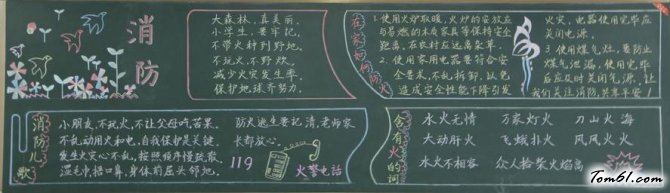 消防
大森林，真美丽，
小学生，要牢记，
不带火种到野地。
不玩火，不野炊，
减少火灾发生率，
保护地球齐努力。
在家如何防火
1.使用火炉取暖，火炉的安放应
与易燃的木质家具等保持安全
距离，在农村应远离柴草。
2.使用家用电器要符合安
全要求，不乱拆卸，以免
造成安全性能下降引发
火灾，电器使用完毕应
关闭电源。
3.使用煤气灶，要防止
煤气泄漏，使用完毕
后应及时关闭气源，让
我们关注消防，共享平安！
消防儿歌
小朋友，不玩火，不让父母吃苦果。
不乱动用火和电，自我保护是关键。
发生火灾心不乱，按照顺序慢疏散。
湿毛巾，捂口鼻，身体前屈头邻地。
防火逃生要记清，老师家
长都放心。
119
火警电话
含有火的词
水火无情 万家灯火 刀山火海
大动肝火 飞蛾扑火 风风火火
水火不相容 众人拾柴火焰高
Tom61.com